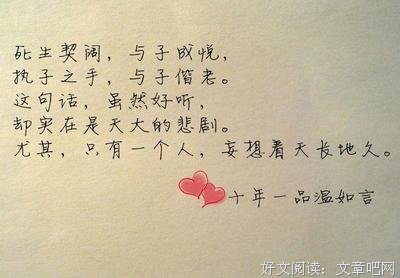 死生契阔，与子成悦，
执子之手，与子偕老。
这句话，虽然好听，
却实在是天大的悲剧。
尤其，只有一个人，妄想着天长地久。
十年一品温如言
好文阅读：文章吧网